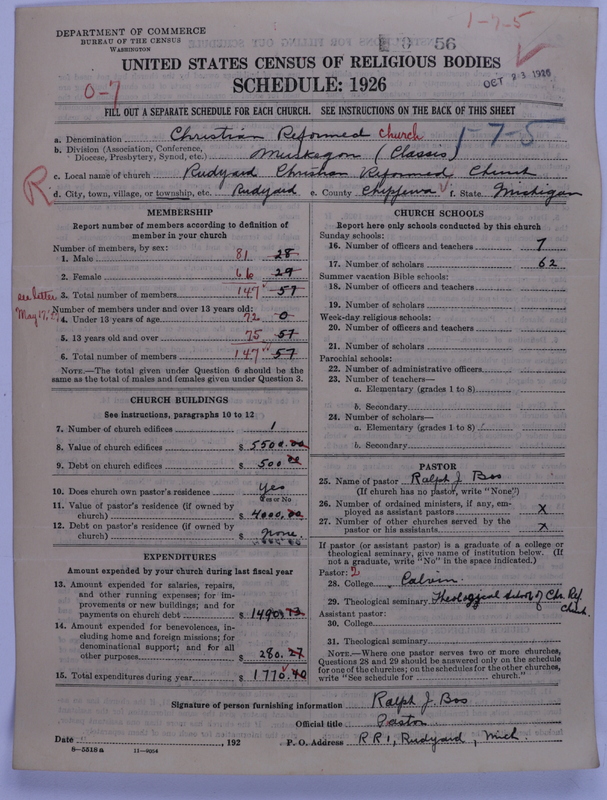 1-7-5
DEPARTMENT OF COMMERCE
BUREAU OF THE CENSUS
WASHINGTON
9 56
UNITED STATES CENSUS OF RELIGIOUS BODIES
SCHEDULE: 1926
OCT 23 1926
0-7
FILL OUT A SEPARATE SCHEDULE FOR EACH CHURCH. SEE INSTRUCTIONS ON THE BACK OF THIS SHEET
a. Denomination Christian Reformed church 1-7-5
b. Division (Association, Conference,
Diocese, Presbytery, Synod, etc.) Muskegon (Classis)
c. Local name of church Rudyard Christian Reformed Church
R
d. City, town, village, or township, etc. Rudyard e. County Chippewa f. State Michigan
MEMBERSHIP
Report number of members according to definition of
member in your church
Number of members, by sex:
1. Male 81 28
2. Female 66 29
3. Total number of members 147 57
see letter
May 17,
Number of members under and over 13 years old:
4. Under 13 years of age 72 0
5. 13 years old and over 75 57
6. Total number of members 147 57
NOTE.—The total given under Question 6 should be
the same as the total of males and females given under Question 3.
CHURCH BUILDINGS
See instructions, paragraphs 10 to 12
7. Number of church edifices 1
8. Value of church edifices $ 5500.00
9. Debt on church edifices $ 500 00
10. Does church own pastor's residence yes
Yes or No
11. Value of pastor's residence (if owned by
church) $ 4000.00
12. Debt on pastor's residence (if owned by
church) $ None.
EXPENDITURES
Amount expended by your church during last fiscal year
13. Amount expended for salaries, repairs,
and other running expenses; for im-
provements or new buildings; and for
payments on church debt $ 1490.13
14. Amount expended for benevolences, in-
cluding home and foreign missions; for
denominational support; and for all
other purposes $ 280.27
15. Total expenditures during year $ 1770.40
CHURCH SCHOOLS
Report here only schools conducted by this church
Sunday schools:
16. Number of officers and teachers 7
17. Number of scholars 62
Summer vacation Bible schools:
18. Number of officers and teachers
19. Number of scholars
Week-day religious schools:
20. Number of officers and teachers
21. Number of scholars
Parochial schools:
22. Number of administrative officers
23. Number of teachers—
a. Elementary (grades 1 to 8)
b. Secondary
24. Number of scholars—
a. Elementary (grades 1 to 8)
b. Secondary
PASTOR
25. Name of pastor Ralph J. Bos
(If church has no pastor, write "None")
26. Number of ordained ministers, if any, em-
ployed as assistant pastors x
27. Number of other churches served by the
pastor or his assistants x
If pastor (or assistant pastor) is a graduate of a college or
theological seminary, give name of institution below. (If
not a graduate, write "No" in the space indicated.)
Pastor: 2
28. College Calvin.
29. Theological seminary Theological School of Chr. Ref. Church.
Assistant pastor:
30. College
31. Theological seminary
NOTE.—Where one pastor serves two or more churches,
Questions 28 and 29 should be answered only on the schedule
for one of the churches; on the schedules for the other churches,
write "See schedule for church."
Signature of person furnishing information Ralph J. Bos
Official title Pastor
Date , 192 P. O. Address RR1, Rudyard, Mich.
8-5518 a 11-9054